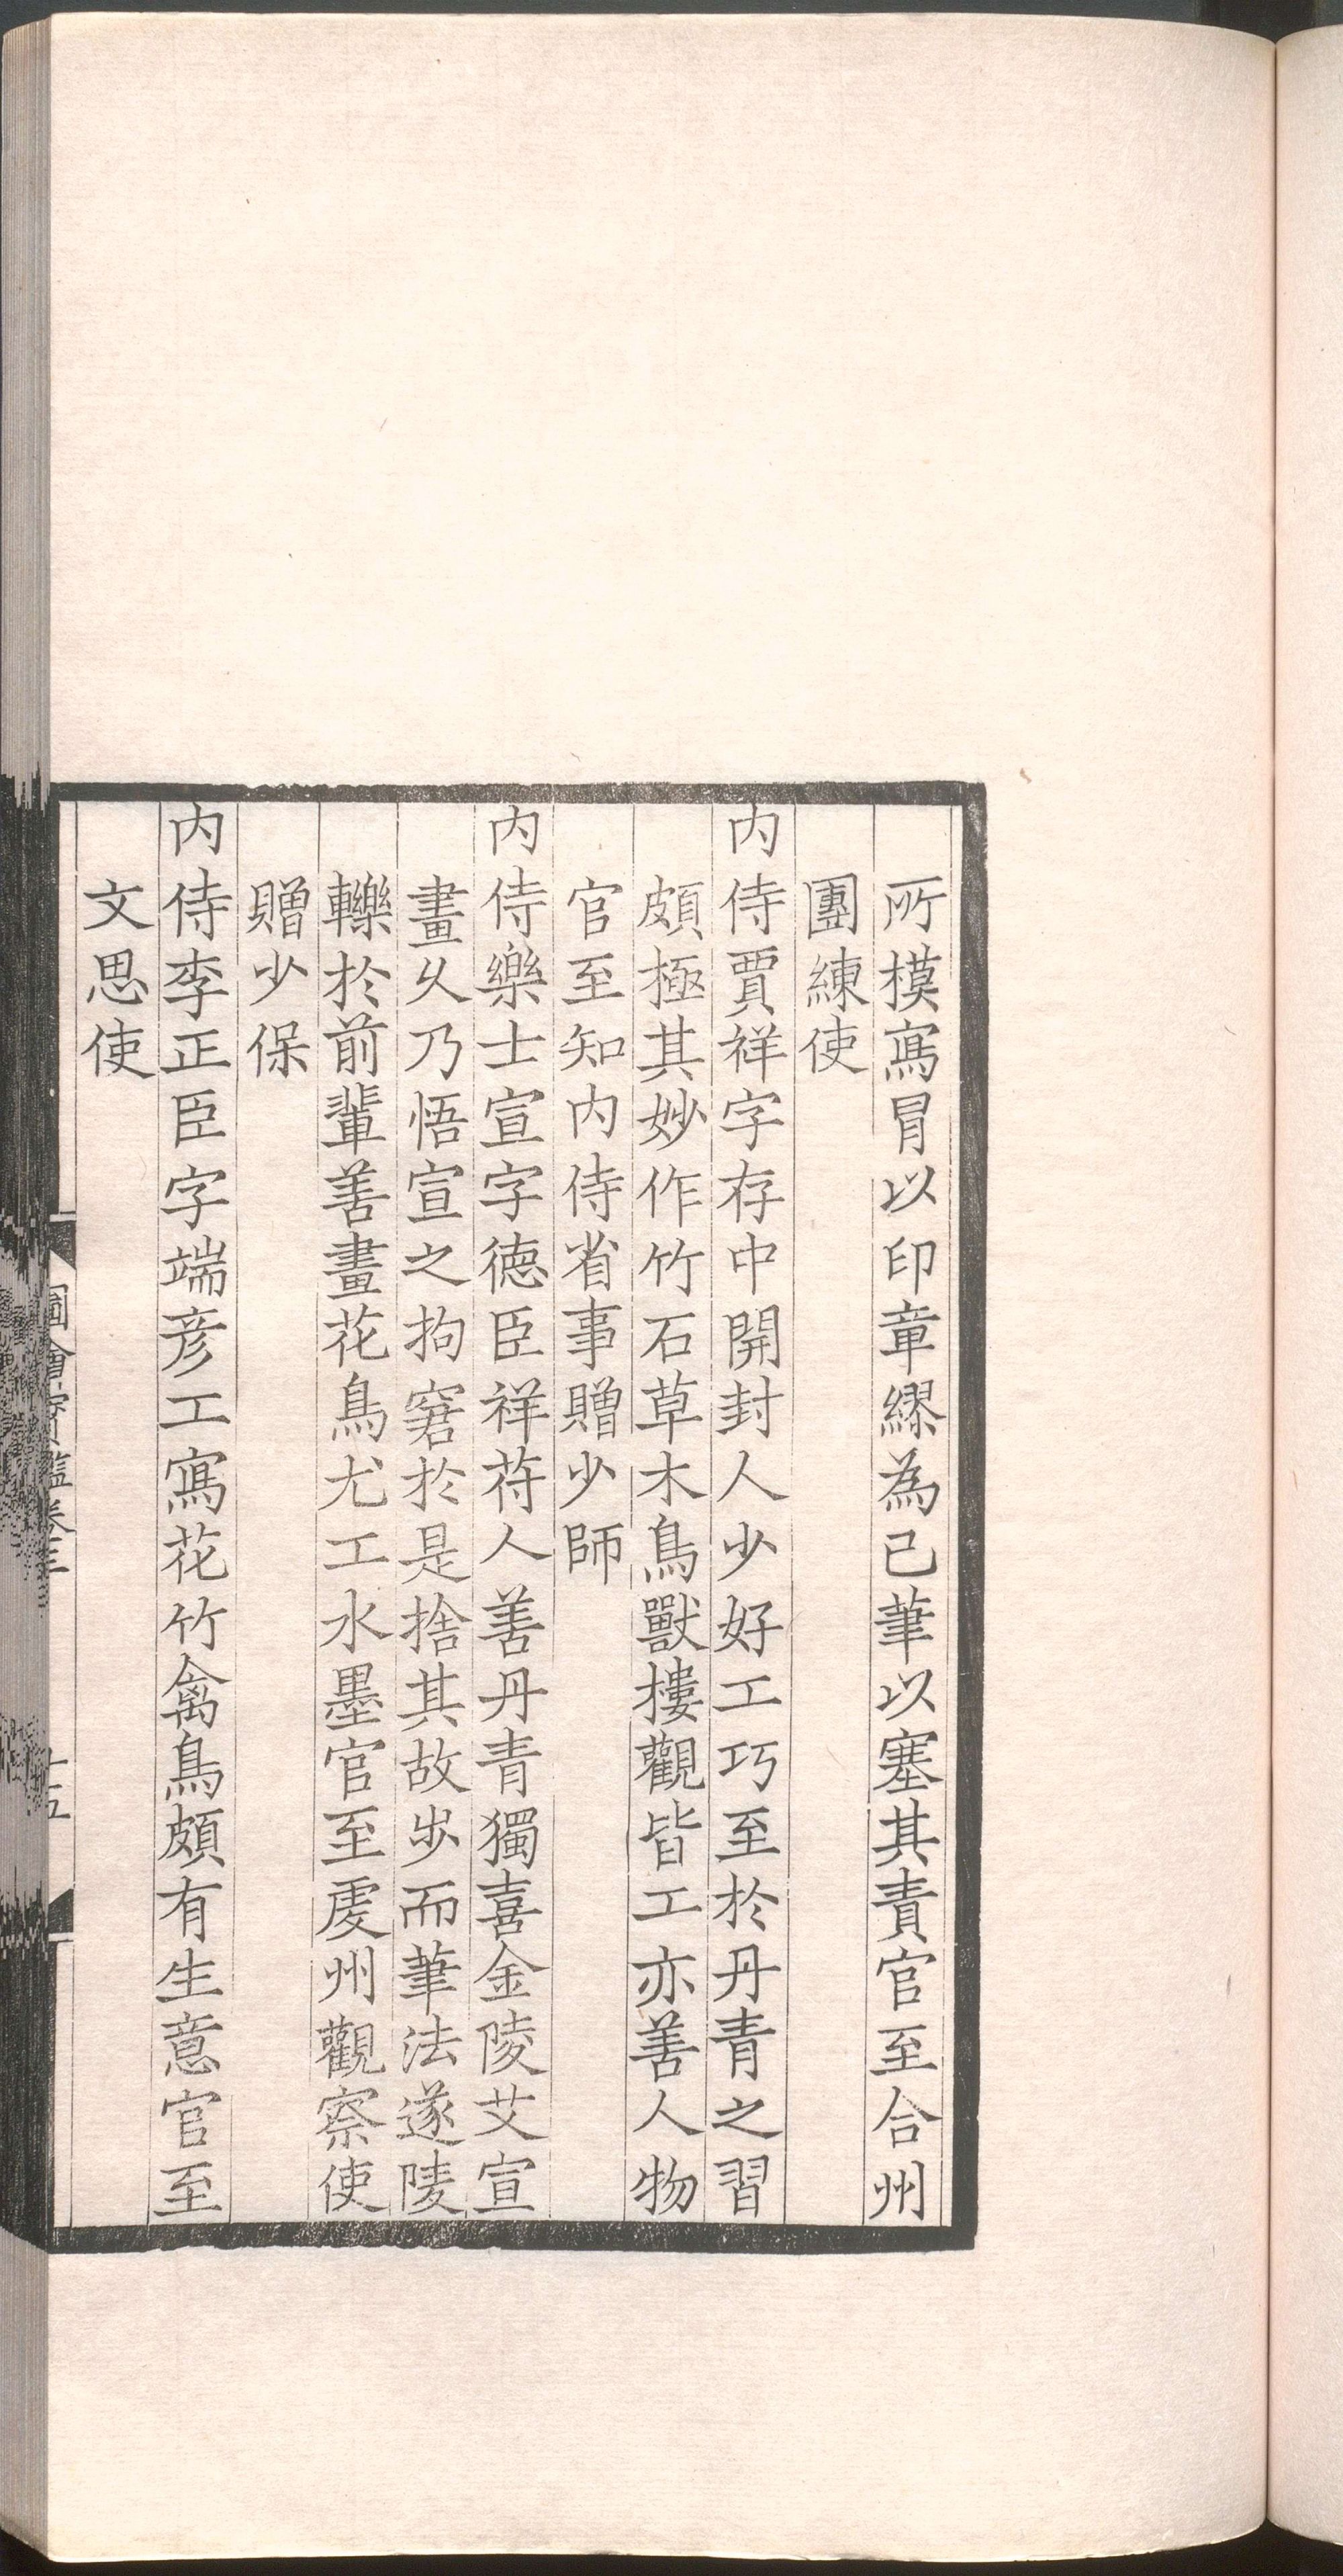 所模寫冐以印章繆為己筆以塞其責官至合州
團練使
内侍賈祥字存中開封人少好工巧至於丹青之習
頗極其妙作竹石草木鳥獸樓觀皆工亦善人物
官至知内侍省事贈少師
内侍樂士宣字德臣祥苻人善丹青獨喜金陵艾宣
畫乆乃悟宣之拘窘於是捨其故步而筆法遂陵
轢於前輩善畫花鳥尤工水墨官至䖍州觀察使
贈少保
内侍李正臣字端彦工寫花竹禽鳥頗有生意官至
文思使
圖繪寳鑑卷三
十五